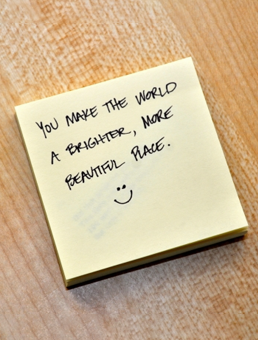 YOU MAKE THE WORLD
A BRIGHTER, MORE
BEAUTIFUL PLACE.